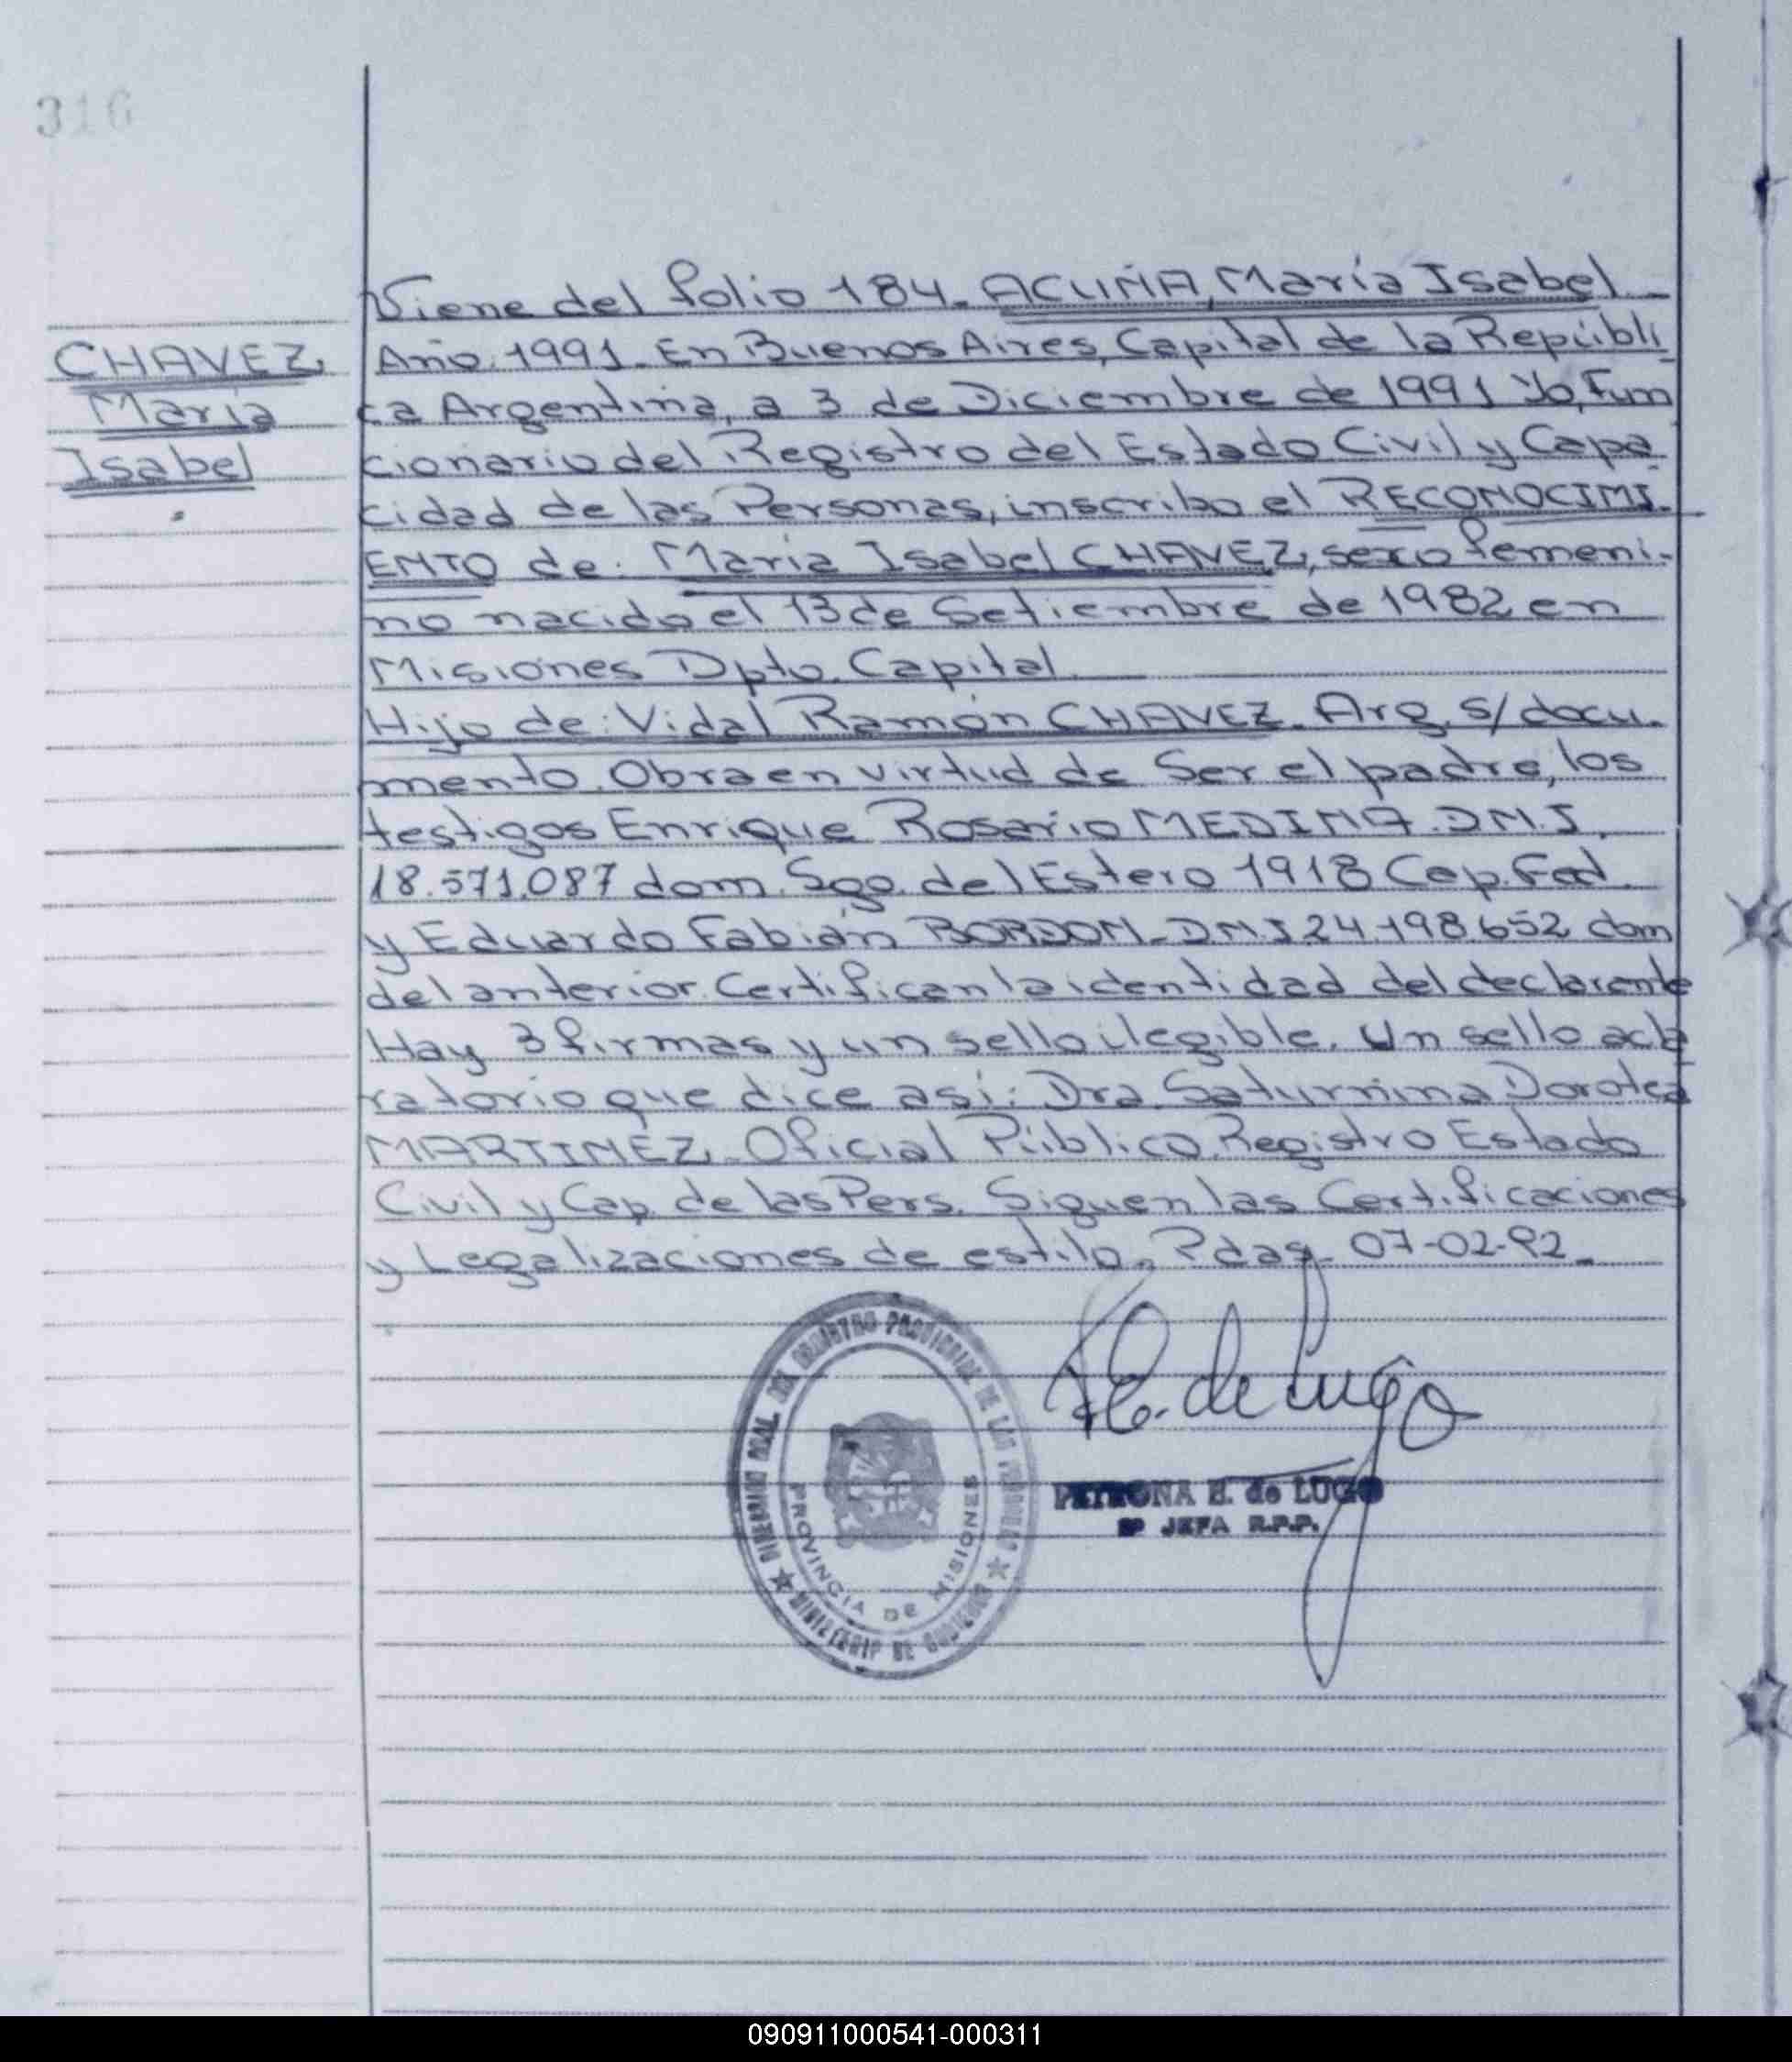 316
CHAVEZ,
María
Isabel
Viene del folio 184. ACUÑA, María Isabel
Año. 1991. En Buenos Aires, Capital de la Repúbli
ca Argentina, a 3 de Diciembre de 1991 Yo, Fun
cionario del Registro del Estado Civil y Capa
cidad de las Personas, inscribo el RECONOCIMI
ENTO de: María Isabel CHAVEZ, sexo femeni-
no nacido el 13 de Setiembre de 1982 en
Misiones Dpto. Capital.
Hijo de: Vidal Ramón CHAVEZ. Arg. s/docu-
mento. Obra en virtud de Ser el padre, los
testigos Enrique Rosario MEDINA. D.N.I.
18.571.087 dom. Sgo. del Estero 1918 Cap. Fed.
y Eduardo Fabián BORDON. DNI 24.198.652 dom
del anterior. Certifican la identidad del declarante
Hay 3 firmas y un sello ilegible. Un sello acla
ratorio que dice así: Dra. Saturnina Dorotea
MARTINEZ. Oficial Público. Registro Estado
Civil y Cap. de las Pers. Siguen las Certificaciones
y Legalizaciones de estilo. Pdas. 07-02-92.
DIRECCION GRAL. DEL REGISTRO PROVINCIAL DE LAS PERSONAS
PROVINCIA DE MISIONES
MINISTERIO DE GOBIERNO
de Lugo
PETRONA E. de LUGO
JEFA R.P.P.
090911000541-000311